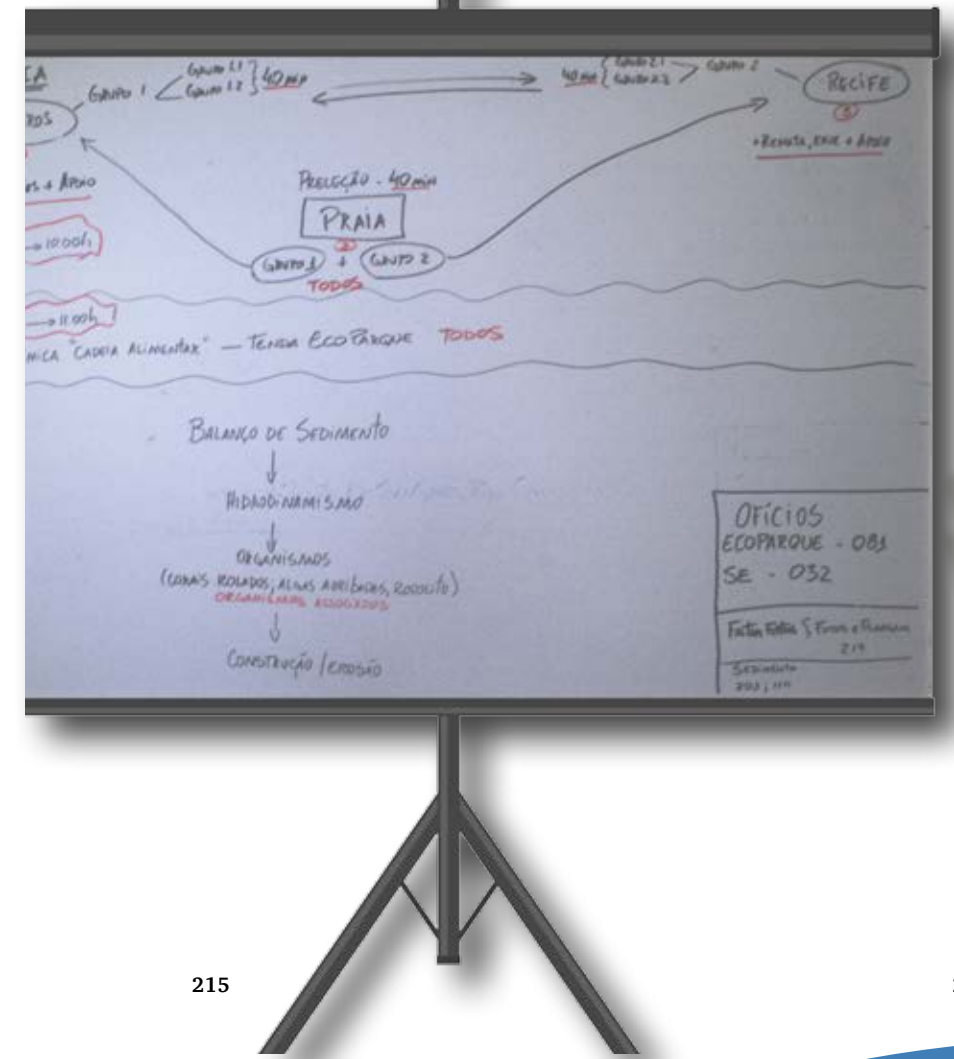 GRUPO 1
GRUPO 1.1
GRUPO 1.2
40 min
40 min
GRUPO 2.1
GRUPO 2.2
GRUPO 2
RECIFE
+ APOIO
+ APOIO
PRELEÇÃO - 40 min
PRAIA
2
GRUPO 1 + GRUPO 2
TODOS
→ 10:00h
→ 11:00h
"CADEIA ALIMENTAR" — TENDA ECOPARQUE TODOS
BALANÇO DE SEDIMENTO
HIDRODINAMISMO
ORGANISMOS
(CORAIS ROLADOS, ALGAS ARRIBADAS, RODOLITO)
ORGANISMOS ASSOCIADOS
CONSTRUÇÃO / EROSÃO
OFÍCIOS
ECOPARQUE - 081
SE - 032
219
SEDIMENTO
215